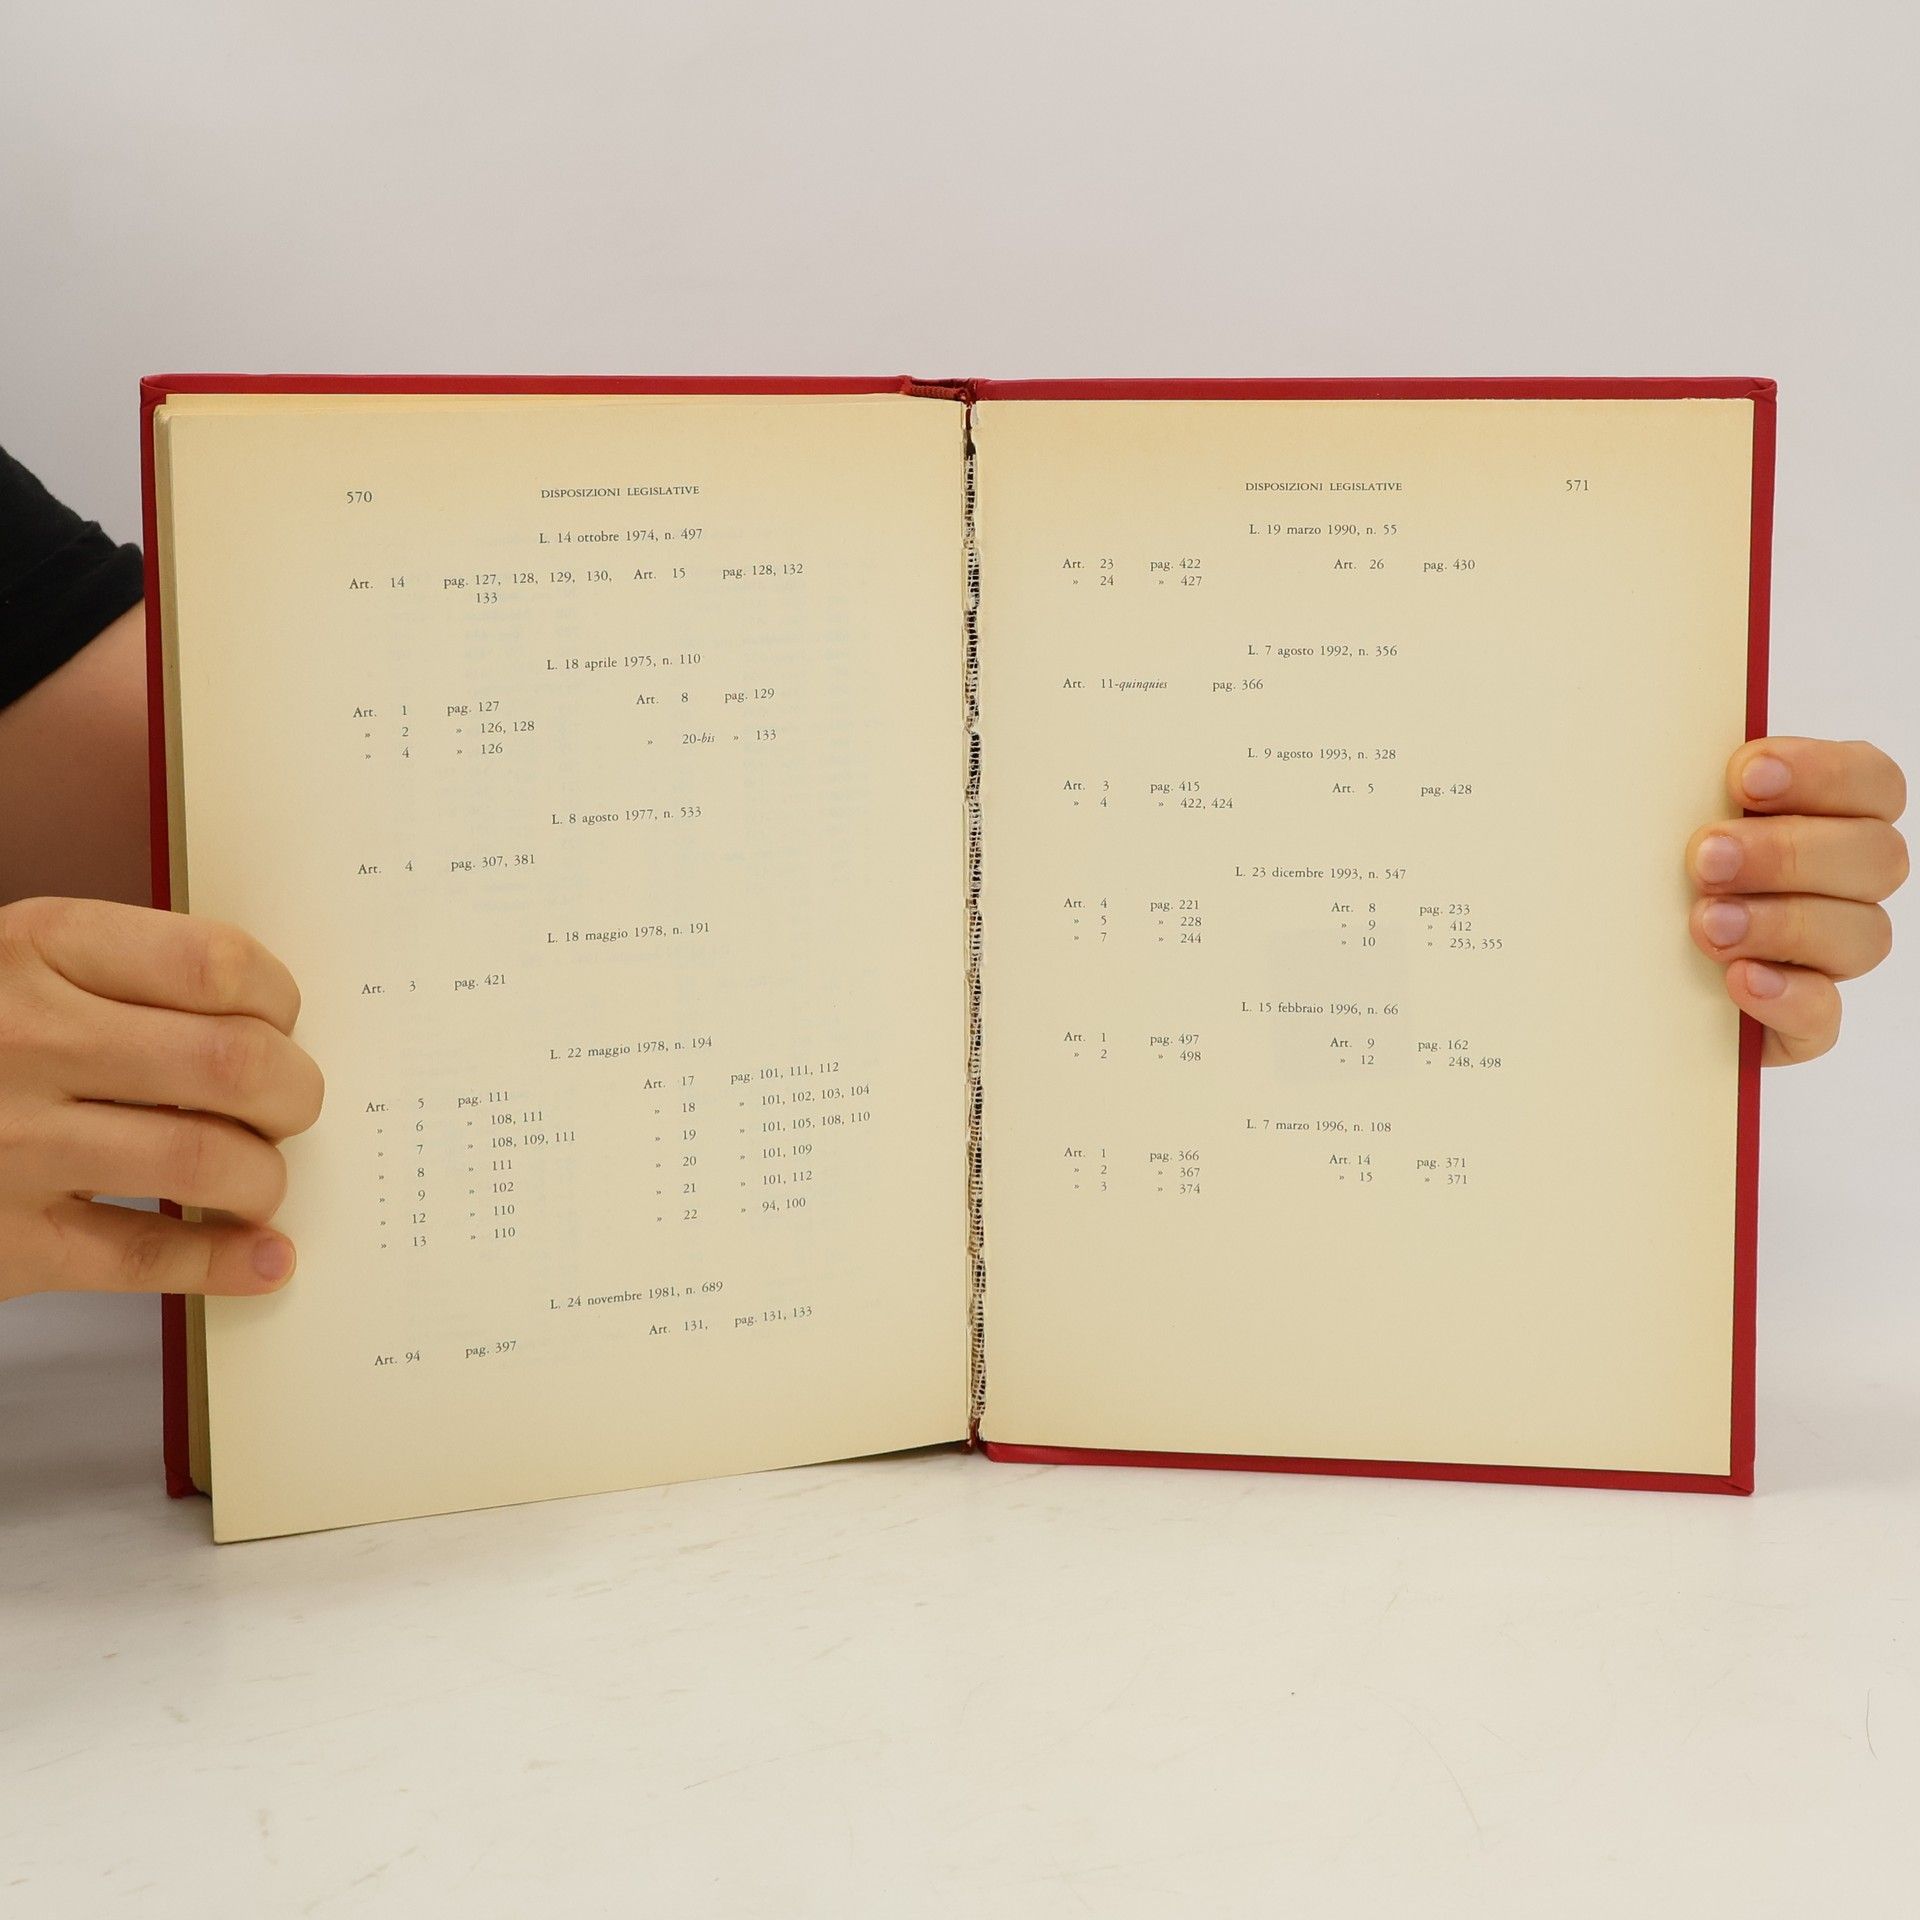 570 DISPOSIZIONI LEGISLATIVE
L. 14 ottobre 1974, n. 497
Art. 14 pag. 127, 128, 129, 130, Art. 15 pag. 128, 132
133
L. 18 aprile 1975, n. 110
Art. 1 pag. 127 Art. 8 pag. 129
» 2 » 126, 128 » 20-bis » 133
» 4 » 126
L. 8 agosto 1977, n. 533
Art. 4 pag. 307, 381
L. 18 maggio 1978, n. 191
Art. 3 pag. 421
L. 22 maggio 1978, n. 194
Art. 5 pag. 111 Art. 17 pag. 101, 111, 112
» 6 » 108, 111 » 18 » 101, 102, 103, 104
» 7 » 108, 109, 111 » 19 » 101, 105, 108, 110
» 8 » 111 » 20 » 101, 109
» 9 » 102 » 21 » 101, 112
» 12 » 110 » 22 » 94, 100
» 13 » 110
L. 24 novembre 1981, n. 689
Art. 94 pag. 397 Art. 131, pag. 131, 133
DISPOSIZIONI LEGISLATIVE 571
L. 19 marzo 1990, n. 55
Art. 23 pag. 422 Art. 26 pag. 430
» 24 » 427
L. 7 agosto 1992, n. 356
Art. 11-quinquies pag. 366
L. 9 agosto 1993, n. 328
Art. 3 pag. 415 Art. 5 pag. 428
» 4 » 422, 424
L. 23 dicembre 1993, n. 547
Art. 4 pag. 221 Art. 8 pag. 233
» 5 » 228 » 9 » 412
» 7 » 244 » 10 » 253, 355
L. 15 febbraio 1996, n. 66
Art. 1 pag. 497 Art. 9 pag. 162
» 2 » 498 » 12 » 248, 498
L. 7 marzo 1996, n. 108
Art. 1 pag. 366 Art. 14 pag. 371
» 2 » 367 » 15 » 371
» 3 » 374